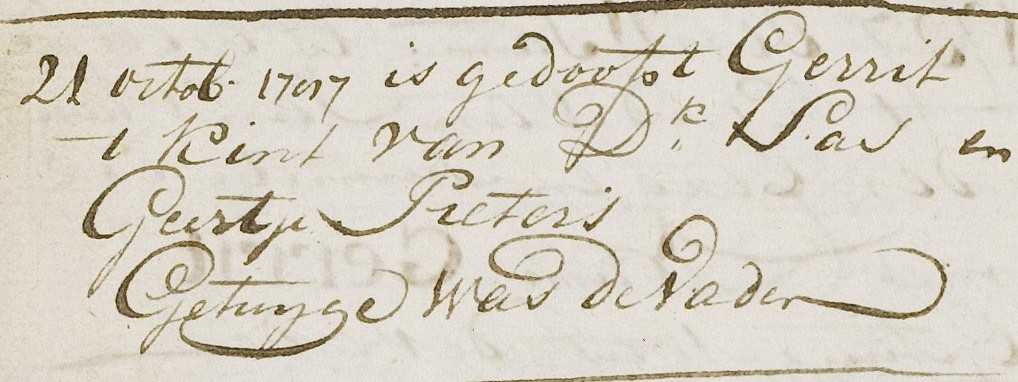 21 octob. 1797 is gedoopt Gerrit
t kint van Dk. Sas en
Geertje Pieters
Getuyge was de vader